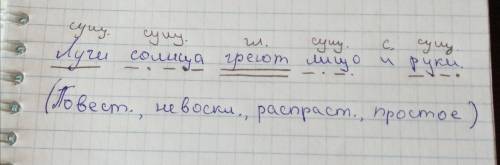 сущ. сущ. гл. сущ. с. сущ.
Лучи солнца греют лицо и руки.
(Повест., невоскл., распраст., простое)